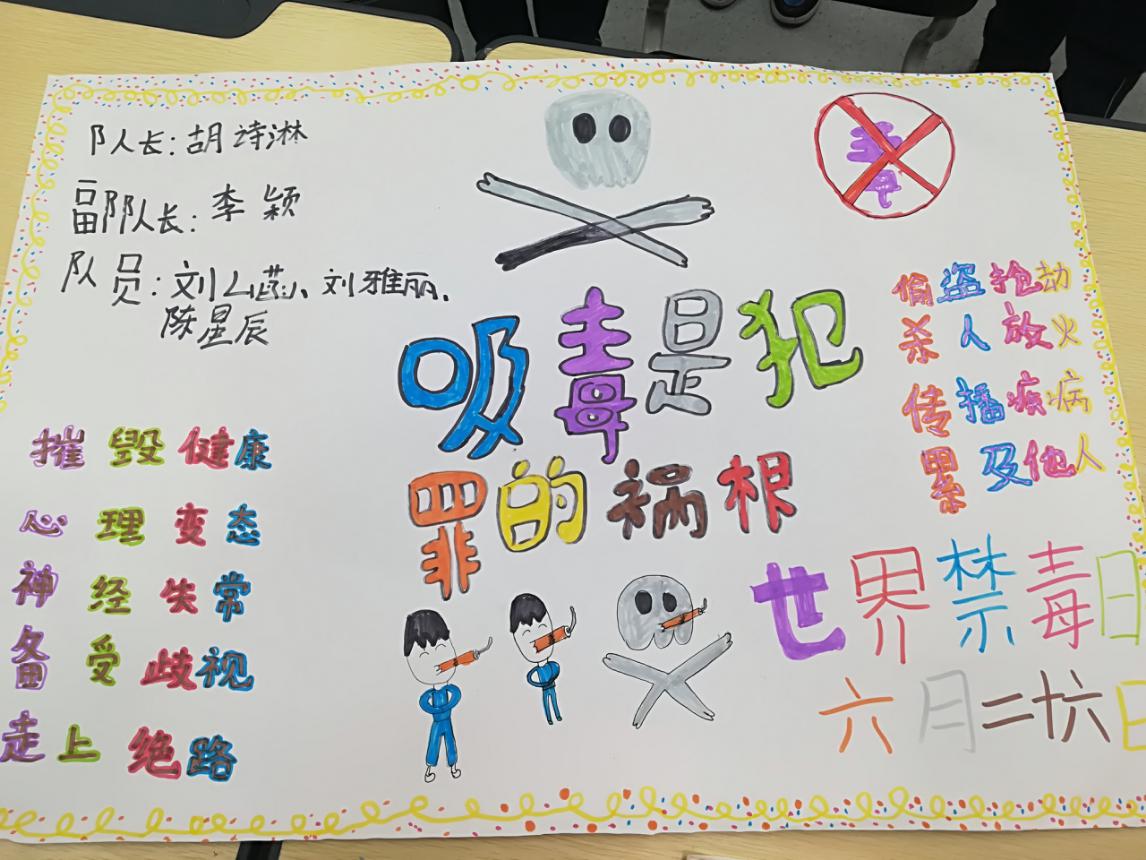 队长:胡诗淋
副队长:李颖
队员:刘么菡、刘雅丽、
陈星辰
毒
吸毒是犯
罪的祸根
偷盗抢劫
杀人放火
传播疾病
累及他人
摧毁健康
心理变态
神经失常
备受歧视
走上绝路
世界禁毒日
六月二十六日